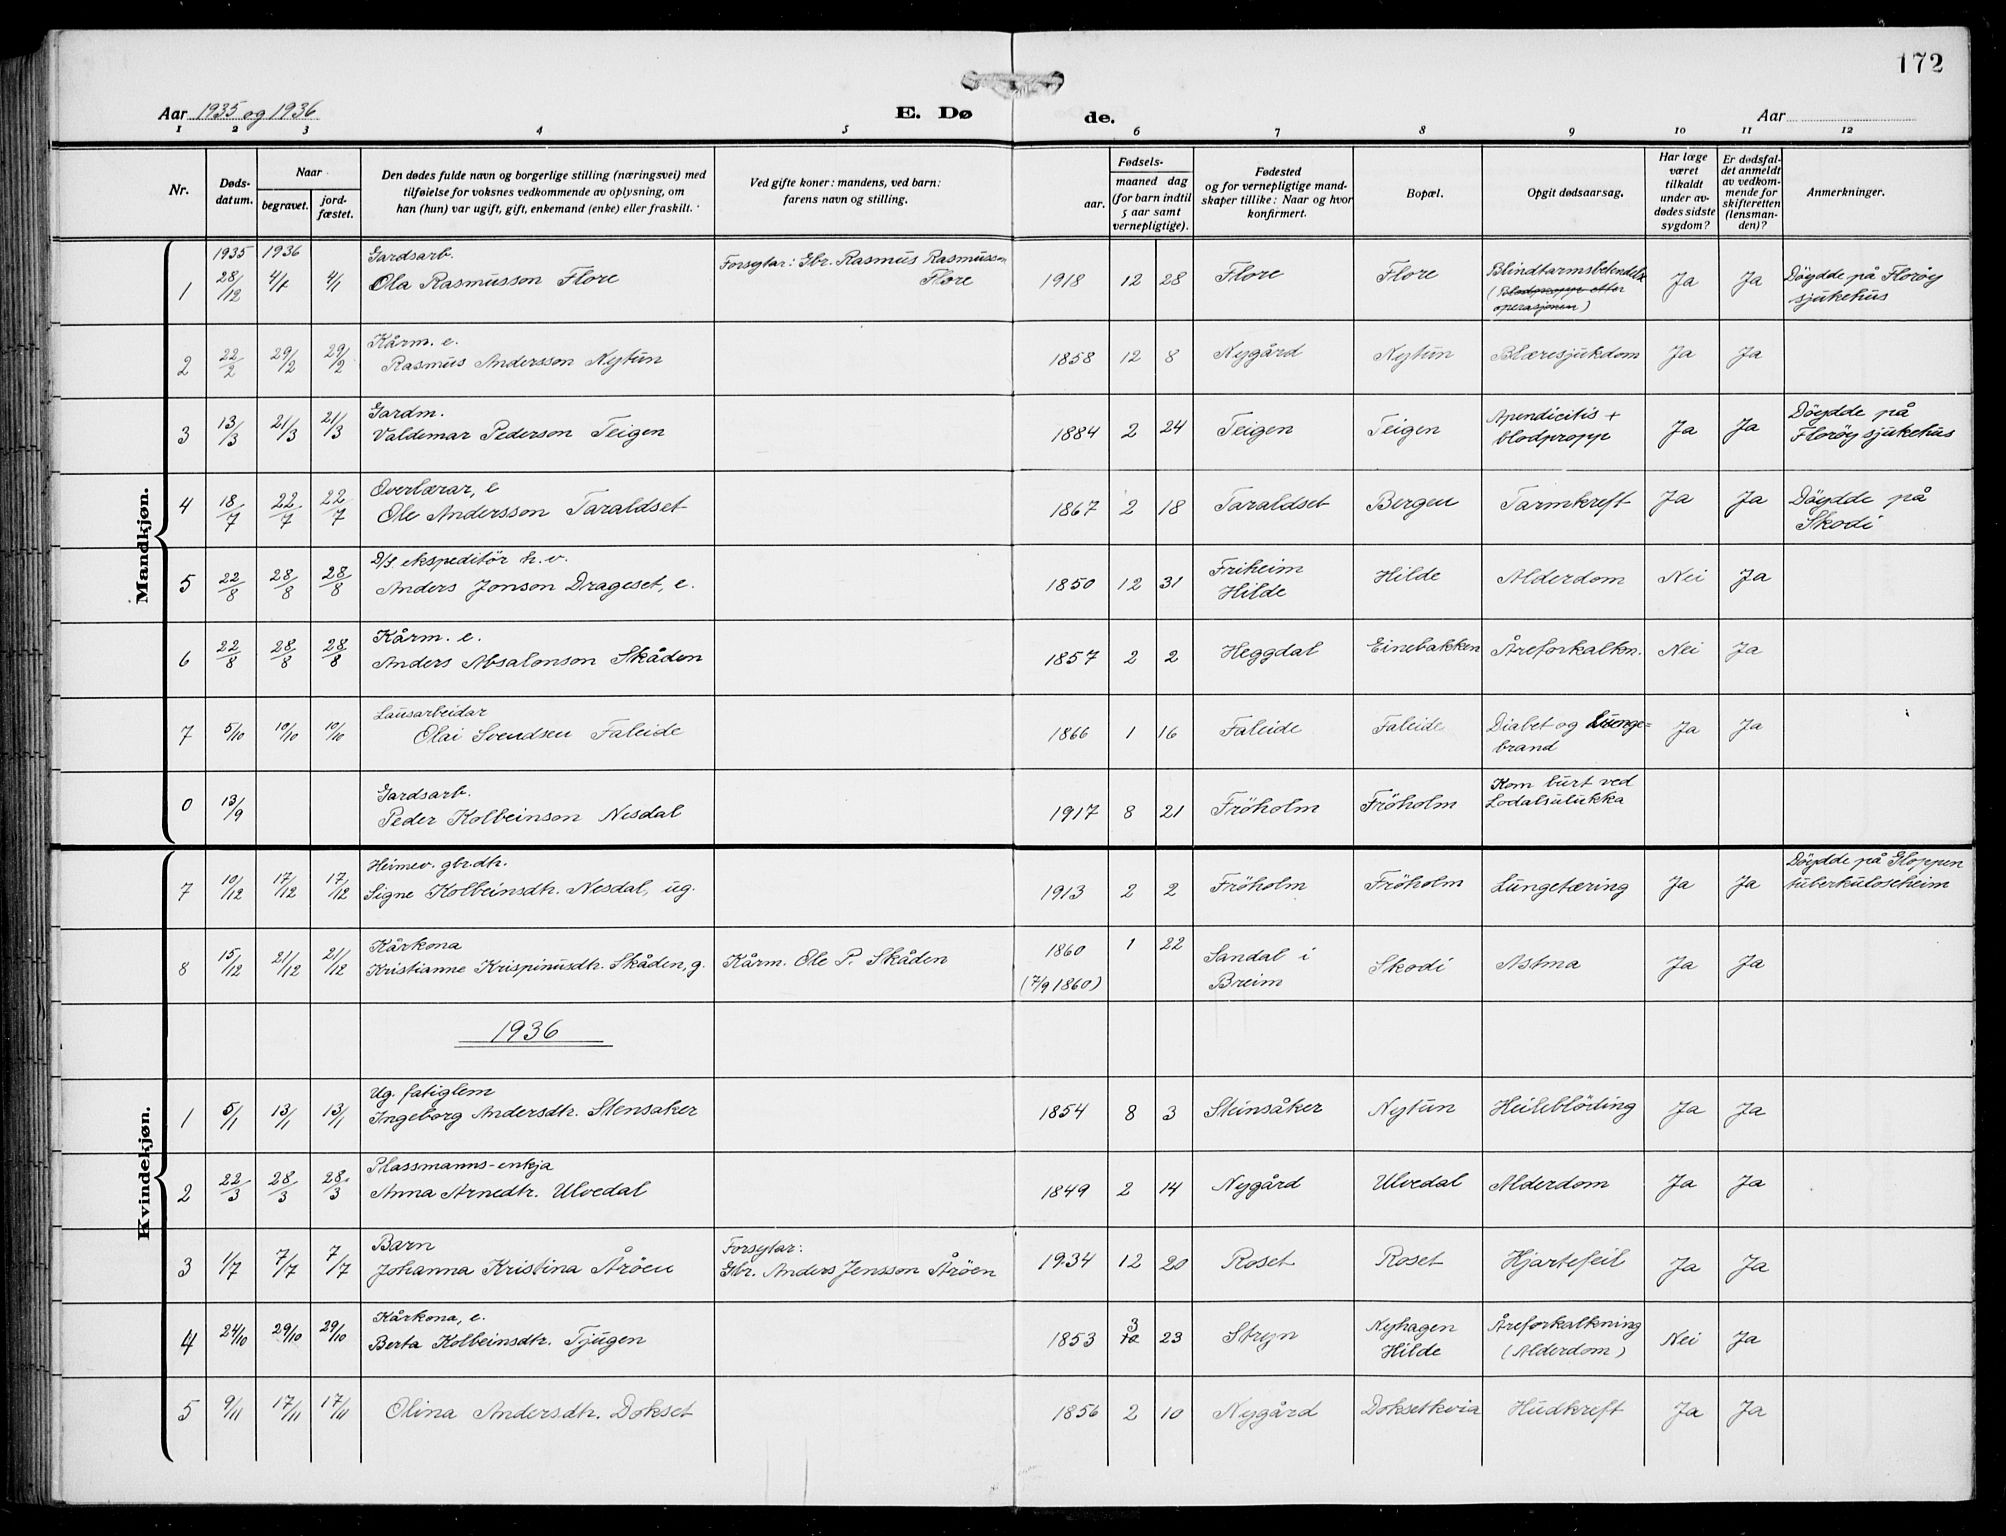 172
Aar 1935 og 1936 E. Dø de. Aar
1 2 3 4 5 6 7 8 9 10 11 12
Nr.
Døds-
datum.
Naar
begravet.
jord-
fæstet.
Den dødes fulde navn og borgerlige stilling (næringsvei) med
tilføielse for voksnes vedkommende av oplysning, om
han (hun) var ugift, gift, enkemand (enke) eller fraskilt.
Ved gifte koner: mandens, ved barn:
farens navn og stilling.
Fødsels-
aar.
maaned dag
(for barn indtil
5 aar samt
vernepligtige).
Fødested
og for vernepligtige mand-
skaper tillike: Naar og hvor
konfirmert.
Bopæl.
Opgit dødsaarsag.
Har læge
været
tilkaldt
under av-
dødes sidste
sygdom?
Er dødsfal-
det anmeldt
av vedkom-
mende for
skifteretten
(lensman-
den)?
Anmerkninger.
Mandkjøn.
1935 1936 Gardsarb. Forsytar: Gbr. Rasmus Rasmusson
1 28/12 4/1 4/1 Ola Rasmusson Flore Flore 1918 12 28 Flore Flore Blindtarmsbetendelse Ja Ja Döydde på Floröy
(Blodpropp etter sjukehus
operasjonen)
Kårm. e.
2 22/2 29/2 29/2 Rasmus Andersson Nytun 1858 12 8 Nygård Nytun Blæresjukdom Ja Ja
Gardm. Apendicitis + Döydde på
3 13/3 21/3 21/3 Valdemar Pederson Teigen 1884 2 24 Teigen Teigen blodpropp Ja Ja Floröy sjukehus
Overlærar, e
4 18/7 22/7 22/7 Ole Andersson Taraldset 1867 2 18 Taraldset Bergen Tarmkreft Ja Ja Döydde på
Skodi
D/s. ekspeditör h. v. Friheim
5 22/8 28/8 28/8 Anders Jonson Drageset, e. 1850 12 31 Hilde Hilde Alderdom Nei Ja
Kårm. e.
6 22/8 28/8 28/8 Anders Absalonson Skåden 1857 2 2 Heggdal Einebakken Åreforkalkn. Nei Ja
Lausarbeidar
7 5/10 10/10 10/10 Olai Svendsen Faleide 1866 1 16 Faleide Faleide Diabet og Lunge= Ja Ja
brand
Gardsarb. Kom burt ved
0 13/9 Peder Kolbeinson Nesdal 1917 8 21 Fröholm Fröholm Lodalsulukka
Kvindekjøn.
Heimev. gbr.dtr. Döydde på Gloppen
7 10/12 17/12 17/12 Signe Kolbeinsdtr. Nesdal, ug. 1913 2 2 Fröholm Fröholm Lungetæring Ja Ja tuberkuloseheim
Kårkona 1860 1 22 Sandal i
8 15/12 21/12 21/12 Kristianne Krispinusdtr. Skåden, g. Kårm. Ole P. Skåden (7/9 1860) Breim Skodi Astma Ja Ja
1936
Ug. fatiglem
1 5/1 13/1 13/1 Ingeborg Andersdtr. Stensaker 1854 8 3 Steinsåker Nytun Heileblöding Ja Ja
Plassmanns-enkja
2 22/3 28/3 28/3 Anna Arnedtr. Ulvedal 1849 2 14 Nygård Ulvedal Alderdom Ja Ja
Barn Forsytar:
3 1/7 7/7 7/7 Johanna Kristina Åröen Gbr. Anders Jensson Åröen 1934 12 20 Roset Roset Hjartefeil Ja Ja
Kårkona, e. 3 Nyhagen Åreforkalkning
4 24/10 29/10 29/10 Berta Kolbeinsdtr. Tjugen 1853 10 23 Stryn Hilde (Alderdom) Nei Ja
5 9/11 17/11 17/11 Olina Andersdtr. Dokset 1856 2 10 Nygård Doksetkvia Hudkreft Ja Ja